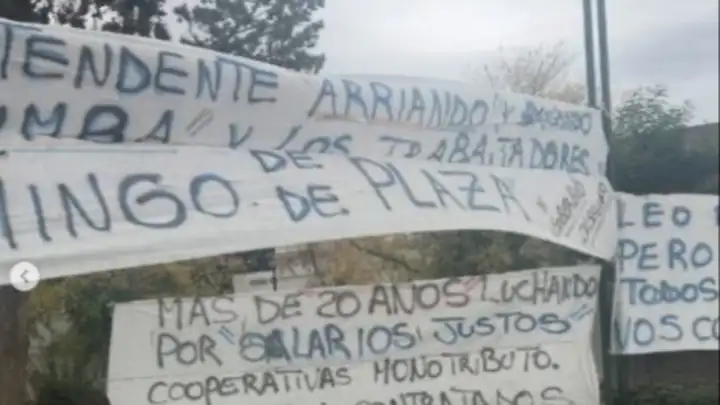 TENDENTE ARRIANDO Y
UMBA" Y LOS TRABAJADORES
DE
MINGO. DE PLAZA
MAS DE 20 AÑOS "LUCHANDO
POR "SALARIOS JUSTOS"
COOPERATIVAS MONOTRIBUTO.
CONTRATADOS
LEO
PERO
TODOS
NOS CO